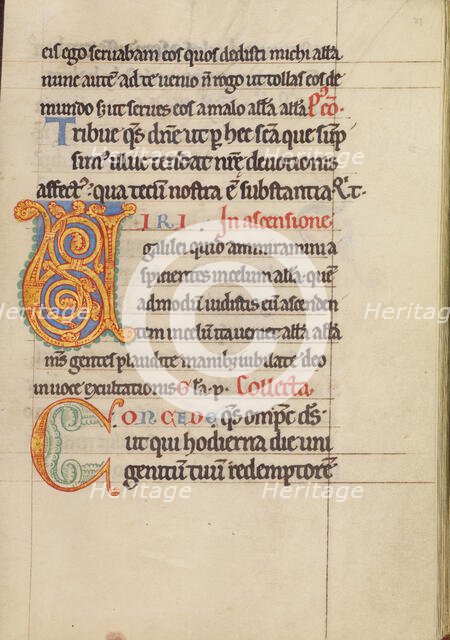 eis ego seruabam eos quos dedisti michi alła
nunc autē ad te uenio ñ rogo ut tollas eos de
mundo s; ut serues eos a malo alła alła P̲ c̄o.
Tribue qs̄ dn̄e ut p hec sc̄a que sūp
sim illuc tendat nr̄e deuotionis
affect᷒ qua tecū nostra ē substantia R̃ t.
VIRI In ascensione
galilei quo ammiramini a
spicientes in celum alła que
admodū uidistis eū ascenden
tem in celū ita ueniet alła alła
oms̄ gentes plaudite manib; iubilate deo
in uoce exultationis Gła p Collecta
CONCEDE qs̄ omp̄c ds̄
ut qui hodierna die uni
genitum tuū redemptorē
Heritage
Heritage
Heritage
Heritage
Heritage
Heritage